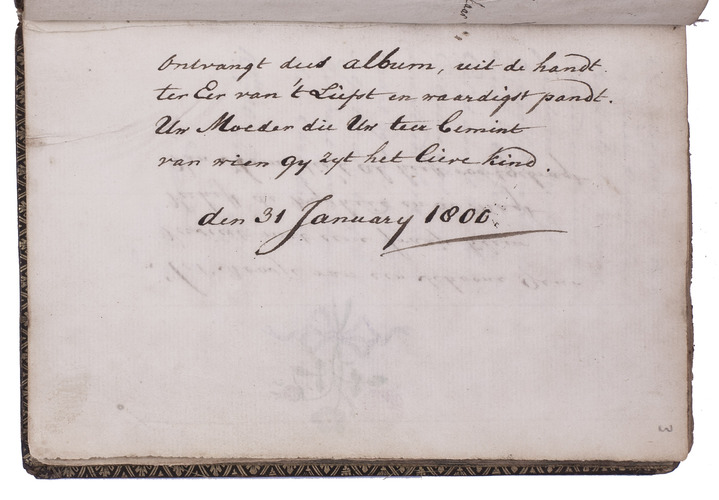 Ontvangt dees album, uit de handt.
ter Eer van 't Liefst en waardigst pandt.
Uw Moeder die Uw teer bemint
van wien gy zyt het lieve kind.
den 31 January 1800.
3